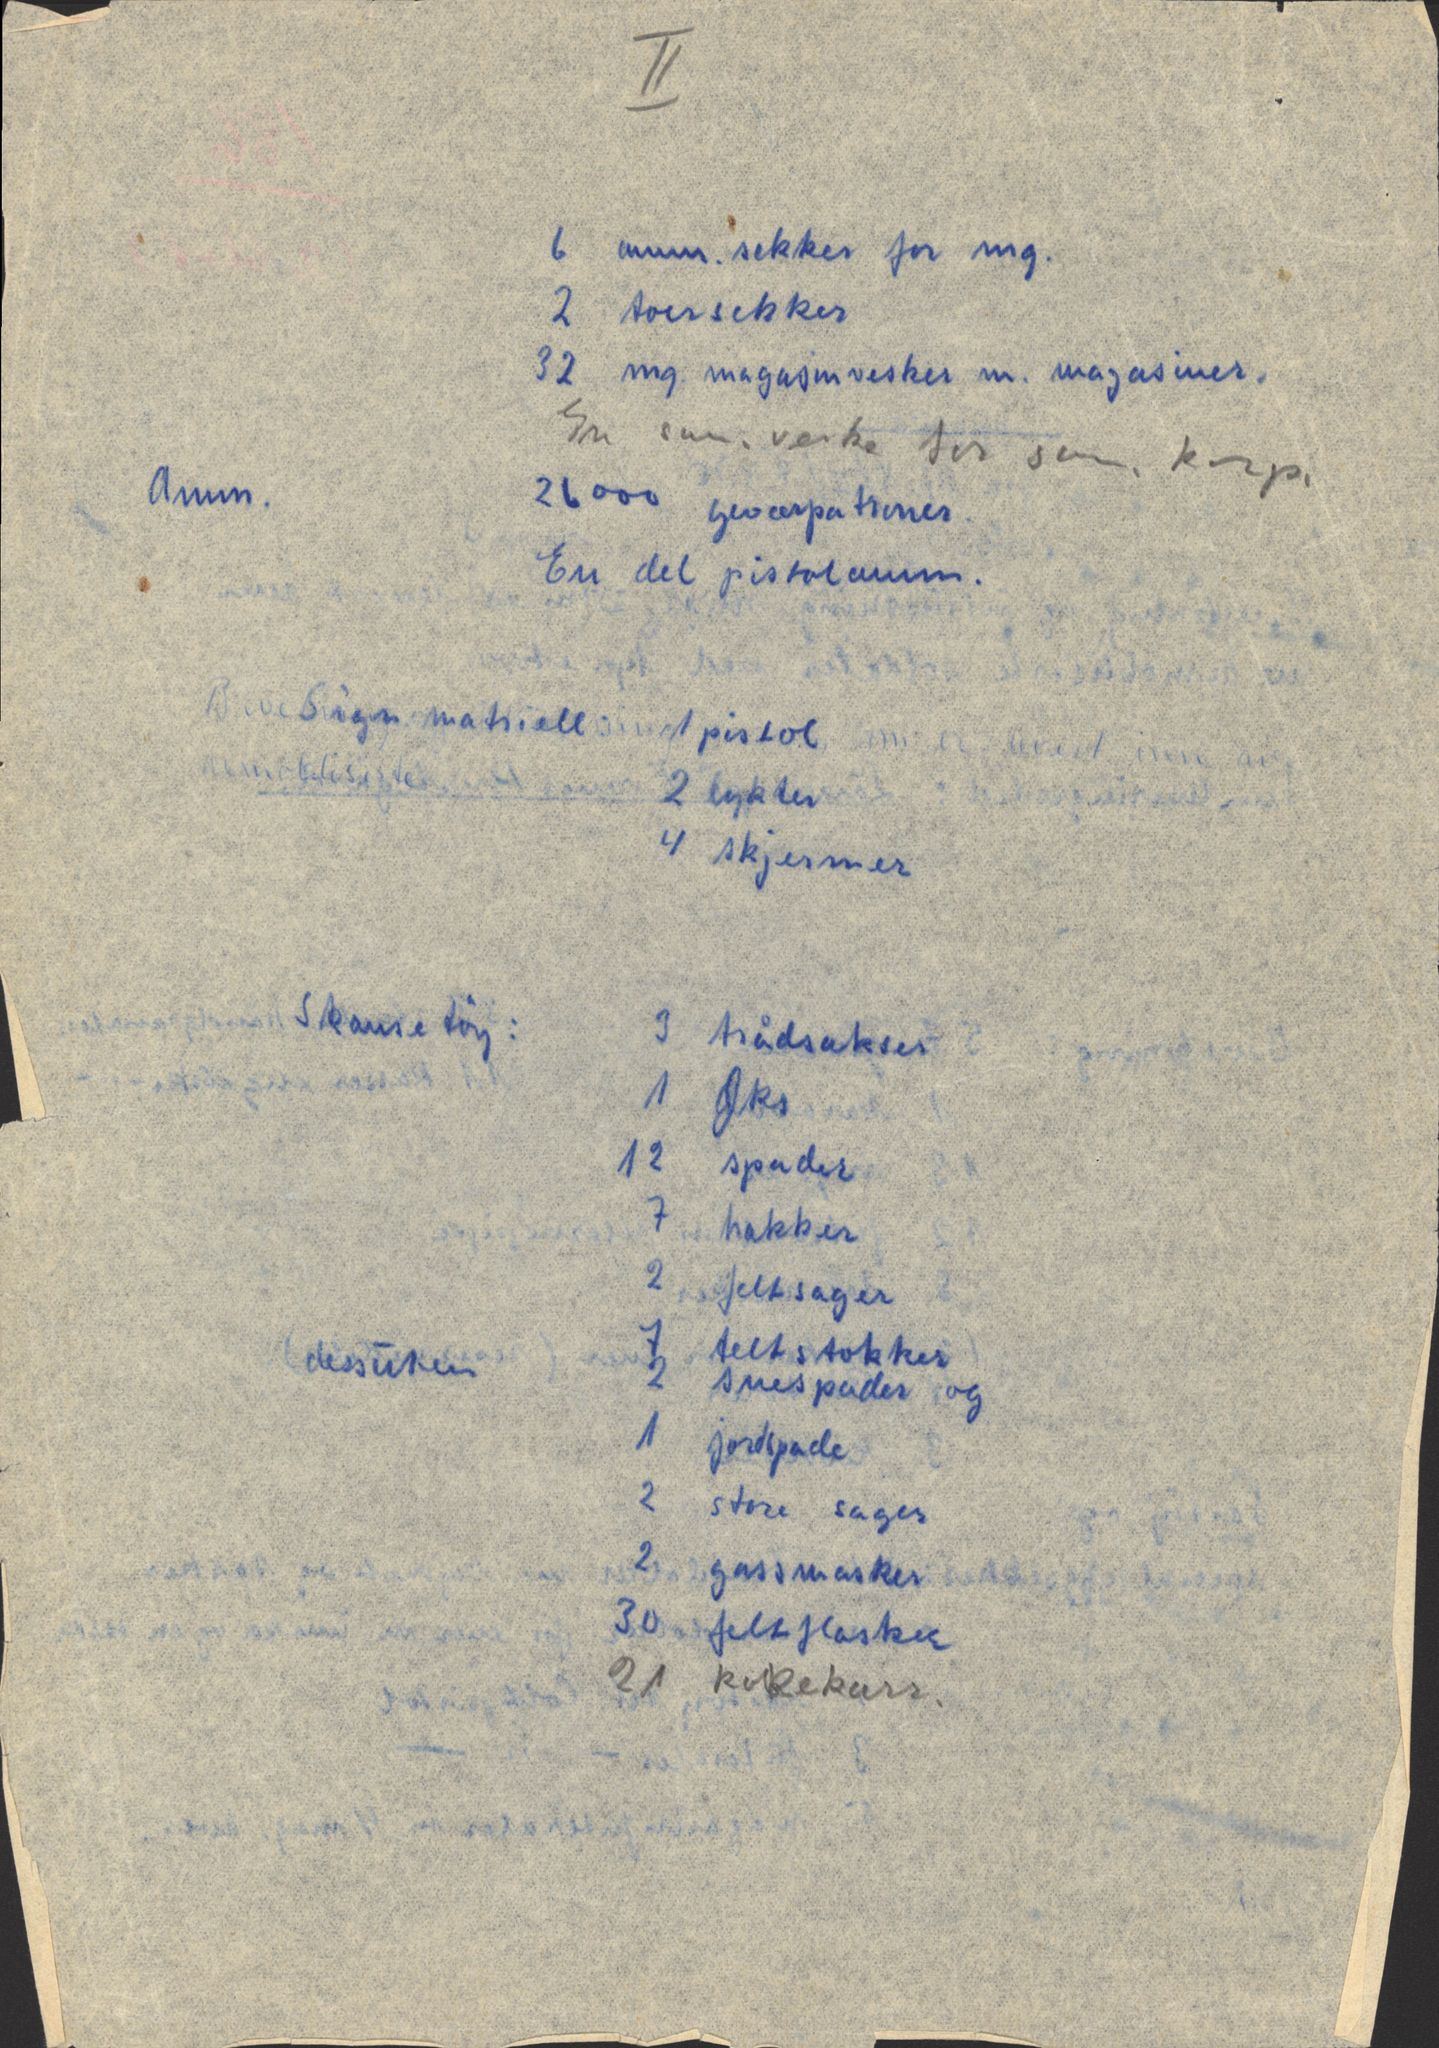 II
6 amm. sekker for mg.
2 toersekker
32 mg. magasinvesker m. magasiner.
En san. veske for san. korp.
Amm. 26000 geværpatroner.
En del pistolamm.
Sign. matriell: 1 pistol
2 lykter
4 skjermer
Skansetöy: 3 trådsakser
1 Øks
12 spader
7 hakker
2 feltsager
7 teltstokker
dessüten 2 snespader og
1 jordspade
2 store sager
2 gassmasker
30 feltflasker
21 kokekarr.